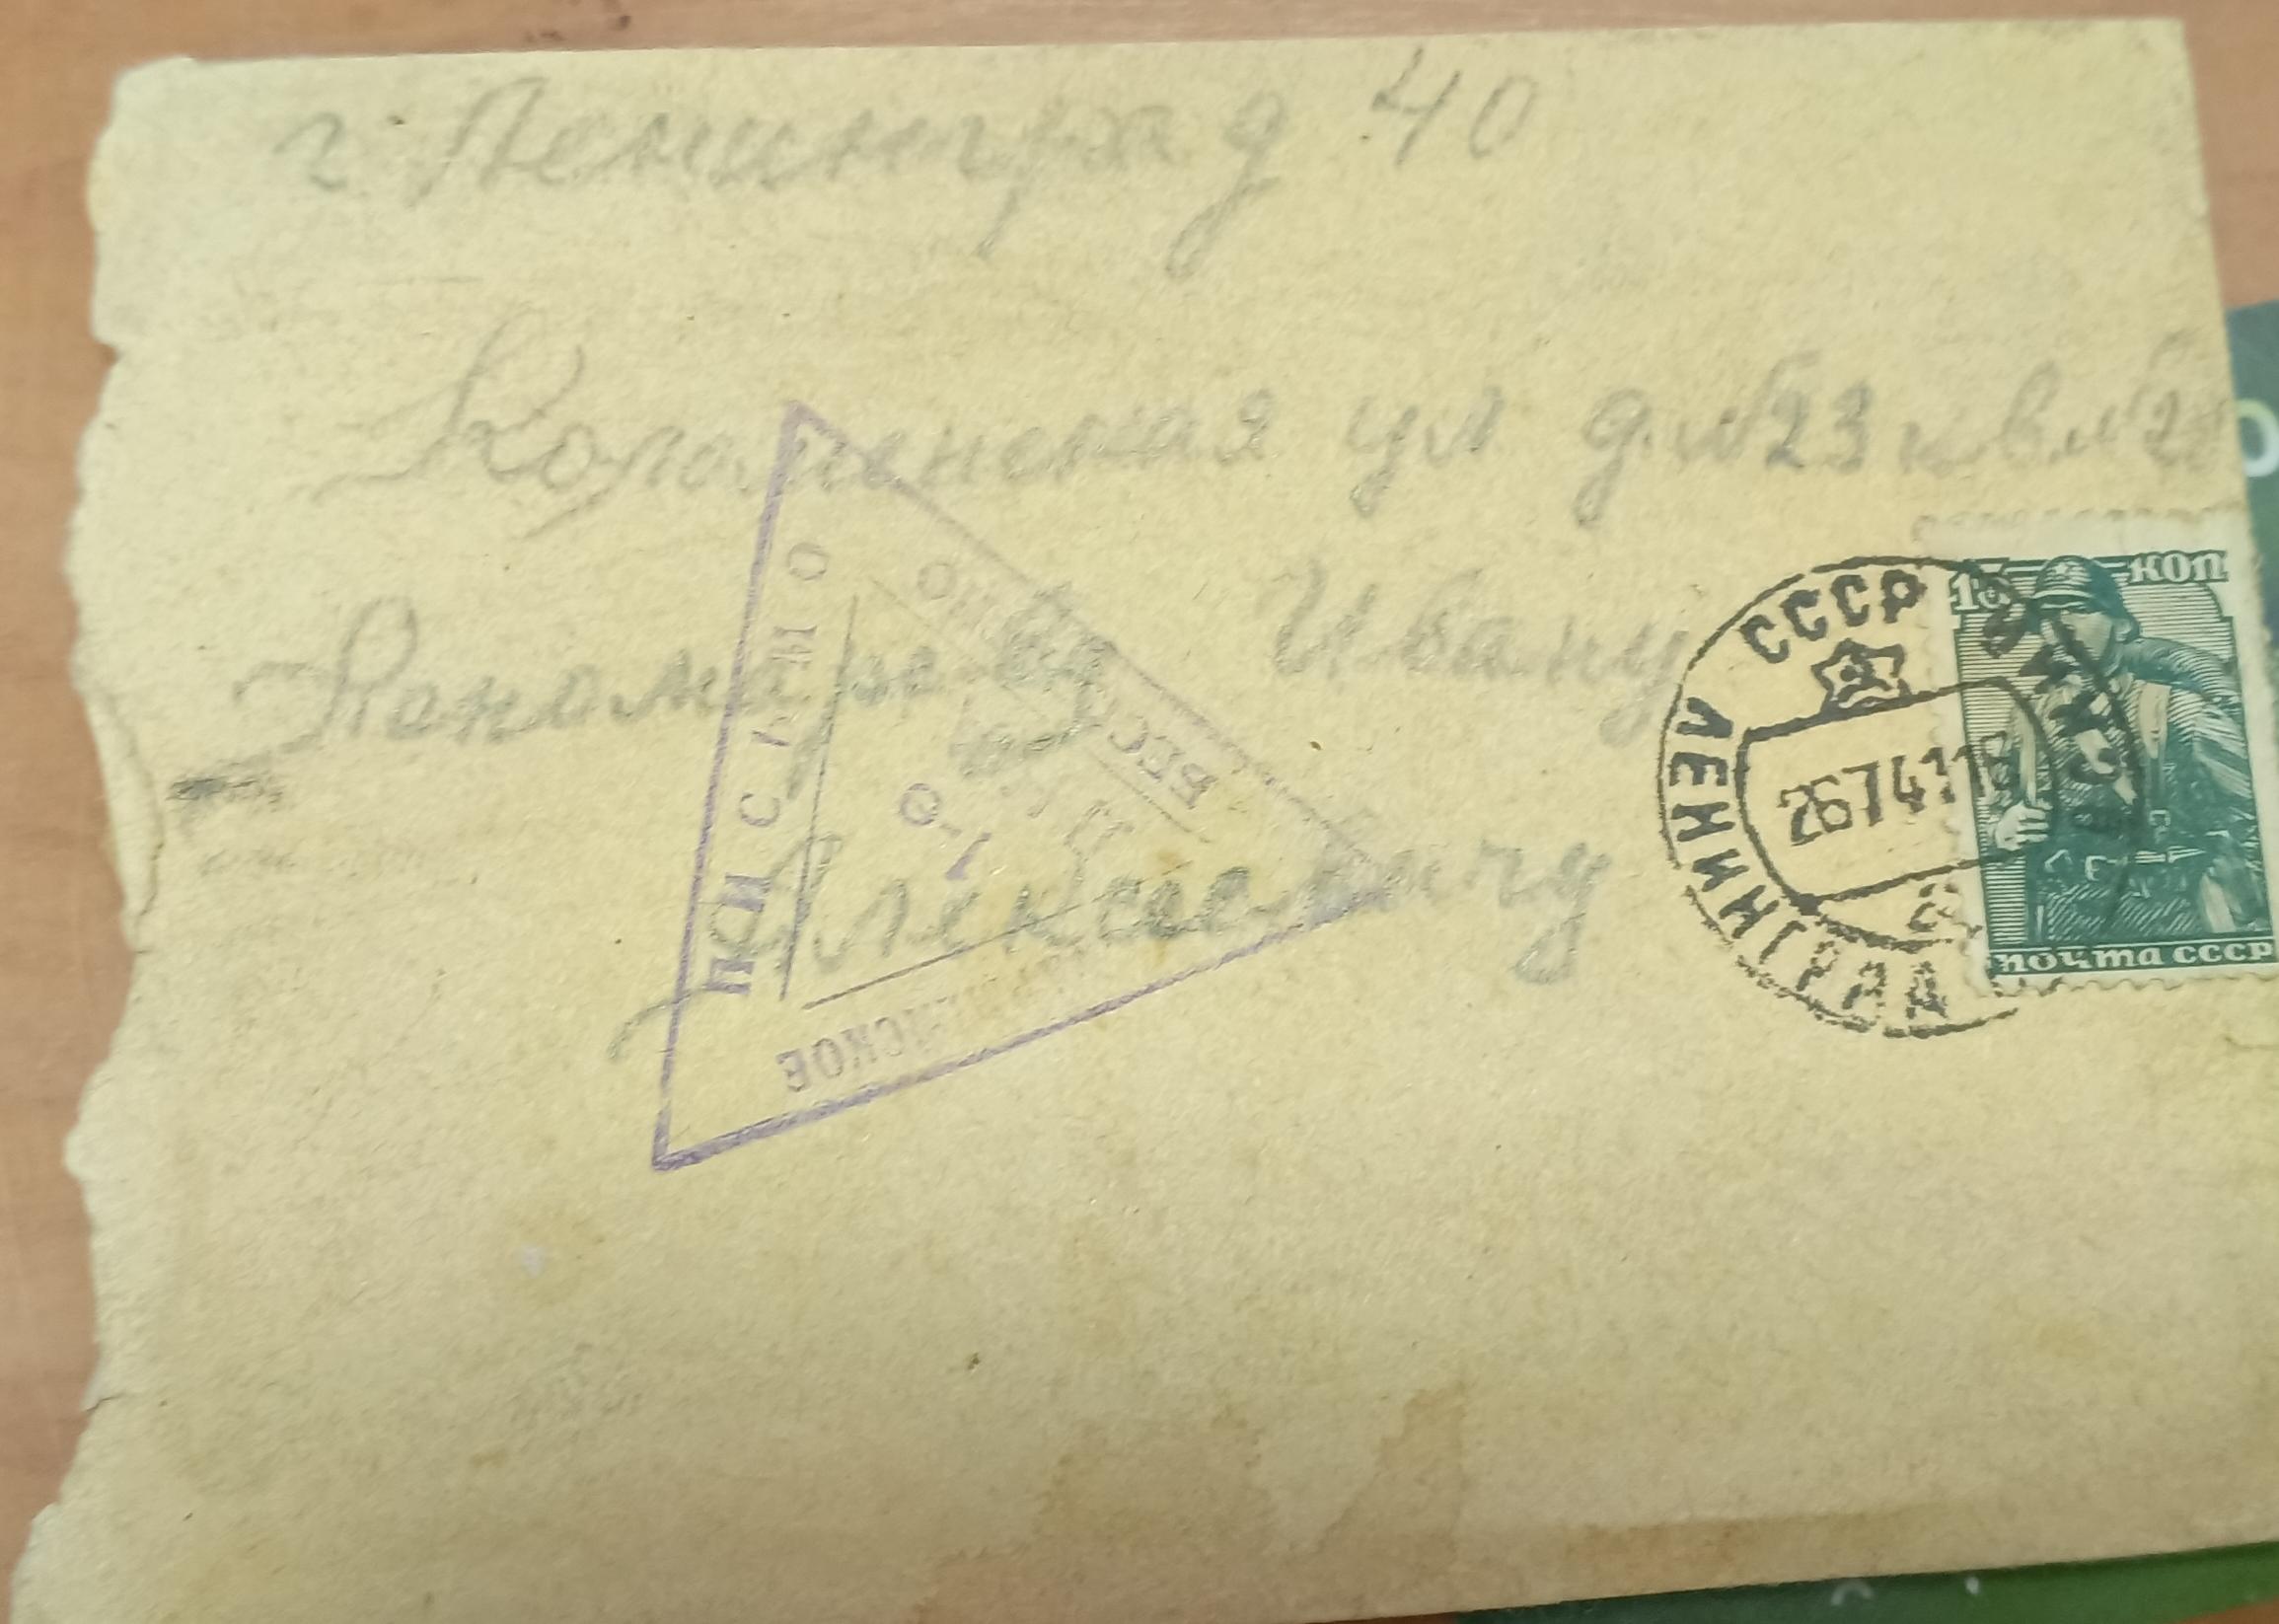 г. Ленинград 40
Коломенская ул д. №23 кв. №2
Пономареву Ивану
Алексеевичу
ПИСЬМО
КРАСНОАРМЕЙСКОЕ
БЕСПЛАТНО
СССР
ЛЕНИНГРАД
26741
15 КОП
ПОЧТА СССР